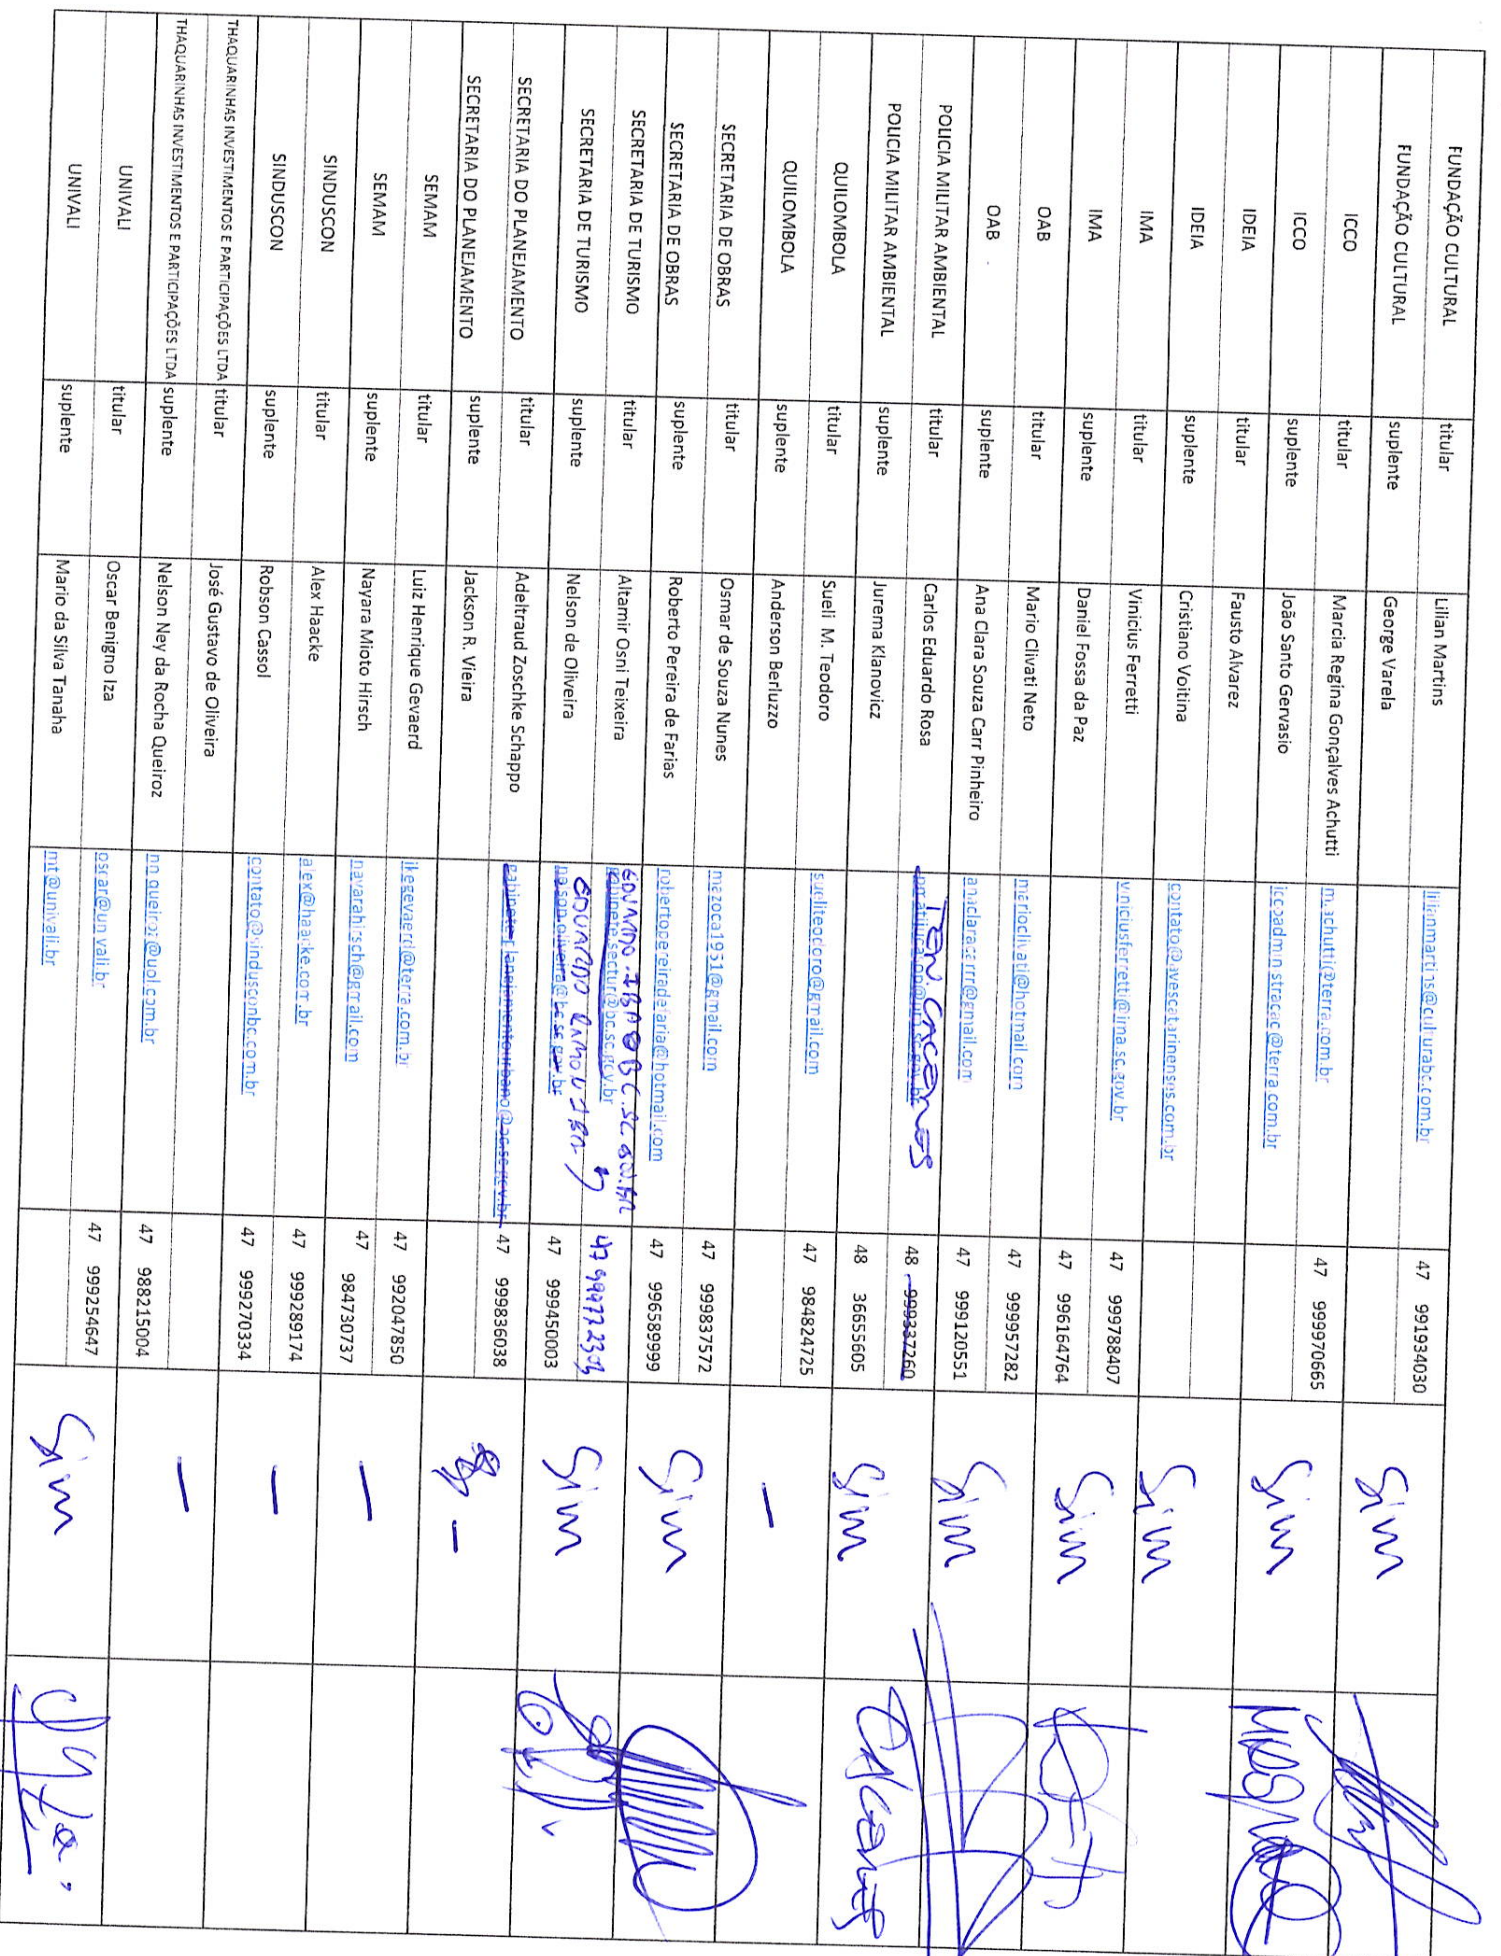 FUNDAÇÃO CULTURAL titular Lilian Martins lilianmartins@culturabc.com.br 47 991934030 Sim
FUNDAÇÃO CULTURAL suplente George Varela
ICCO titular Marcia Regina Gonçalves Achutti m.achutti@terra.com.br 47 999970665 Sim
ICCO suplente João Santo Gervasio iccoadministracao@terra.com.br
IDEIA titular Fausto Alvarez Sim
IDEIA suplente Cristiano Voitina contato@avescatarinenses.com.br
IMA titular Vinicius Ferretti viniciusferretti@ima.sc.gov.br 47 999788407 Sim
IMA suplente Daniel Fossa da Paz 47 996164764
OAB titular Mario Clivati Neto marioclivati@hotmail.com 47 999957282 Sim
OAB suplente Ana Clara Souza Carr Pinheiro anaclaracarrr@gmail.com 47 999120551
POLICIA MILITAR AMBIENTAL titular Carlos Eduardo Rosa 48 999337260 Sim
POLICIA MILITAR AMBIENTAL suplente Jurema Klanovicz 48 36655605
QUILOMBOLA titular Sueli M. Teodoro sueliteodoro@gmail.com 47 984824725 –
QUILOMBOLA suplente Anderson Berluzzo
SECRETARIA DE OBRAS titular Osmar de Souza Nunes mazoca1951@gmail.com 47 999837572 Sim
SECRETARIA DE OBRAS suplente Roberto Pereira de Farias robertopereiradefaria@hotmail.com 47 996589999
SECRETARIA DE TURISMO titular Altamir Osni Teixeira gabinete.sectur@bc.sc.gov.br Sim
SECRETARIA DE TURISMO suplente Nelson de Oliveira nelson.oliveira@bc.sc.gov.br 47 999450003
SECRETARIA DO PLANEJAMENTO titular Adeltraud Zoschke Schappo gabinete.planejamentourbano@bc.sc.gov.br 47 999836038 –
SECRETARIA DO PLANEJAMENTO suplente Jackson R. Vieira
SEMAM titular Luiz Henrique Gevaerd ikegevaerd@terra.com.br 47 992047850 –
SEMAM suplente Nayara Mioto Hirsch nayarahirsch@gmail.com 47 984730737
SINDUSCON titular Alex Haacke alex@haacke.com.br 47 999289174 –
SINDUSCON suplente Robson Cassol contato@sindusconbc.com.br 47 999270334
THAQUARINHAS INVESTIMENTOS E PARTICIPAÇÕES LTDA titular José Gustavo de Oliveira –
THAQUARINHAS INVESTIMENTOS E PARTICIPAÇÕES LTDA suplente Nelson Ney da Rocha Queiroz nn.queiroz@uol.com.br 47 988215004
UNIVALI titular Oscar Benigno Iza oscar@univali.br 47 999254647 Sim
UNIVALI suplente Mario da Silva Tanaha mt@univali.br